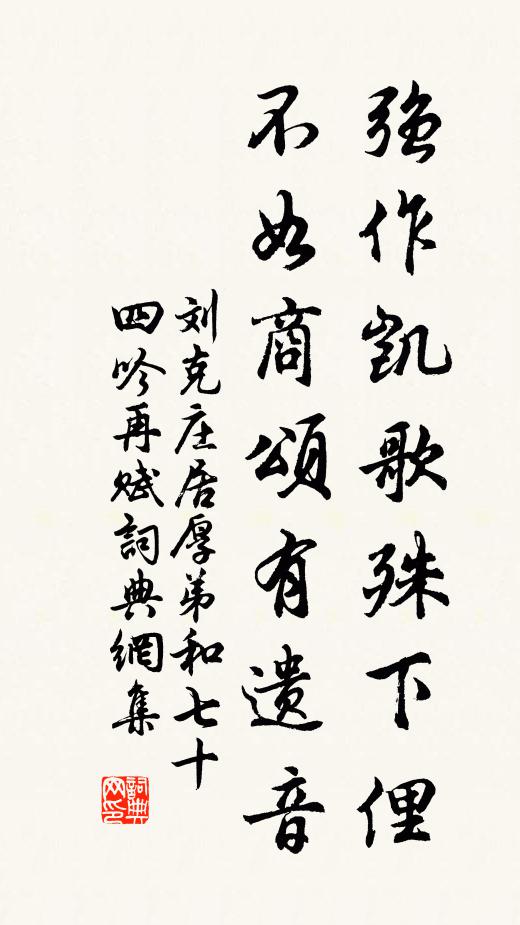 强作凯歌殊下俚
不如商颂有遗音
刘克庄居厚弟和七十
四吟再赋詞典網集
詞典
网印